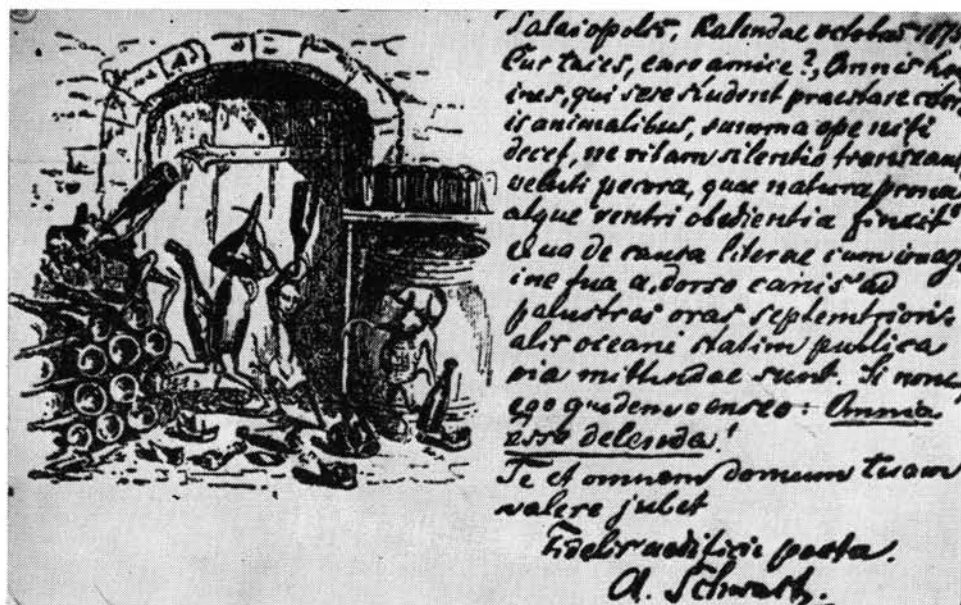 Palaiopolis, Kalendae octobas 187
Cur taces, care amice?, Omnis hom
ines, qui sese student praestare ceter
is animalibus, summa ope niti
decet, ne vitam silentio transeant,
veluti pecora, quae natura prona
atque ventri obedientia finxit
Qua de causa literae cum imag
ine tua a dorso canis ad
palustras oras septemtrion
alis oceani statim publica
via mittendae sunt. Si non,
ego quidem censeo: Omnia
esse delenda!
Te et omnem domum tuam
valere jubet
Fidelis aedificii poeta.
A. Schwartz.